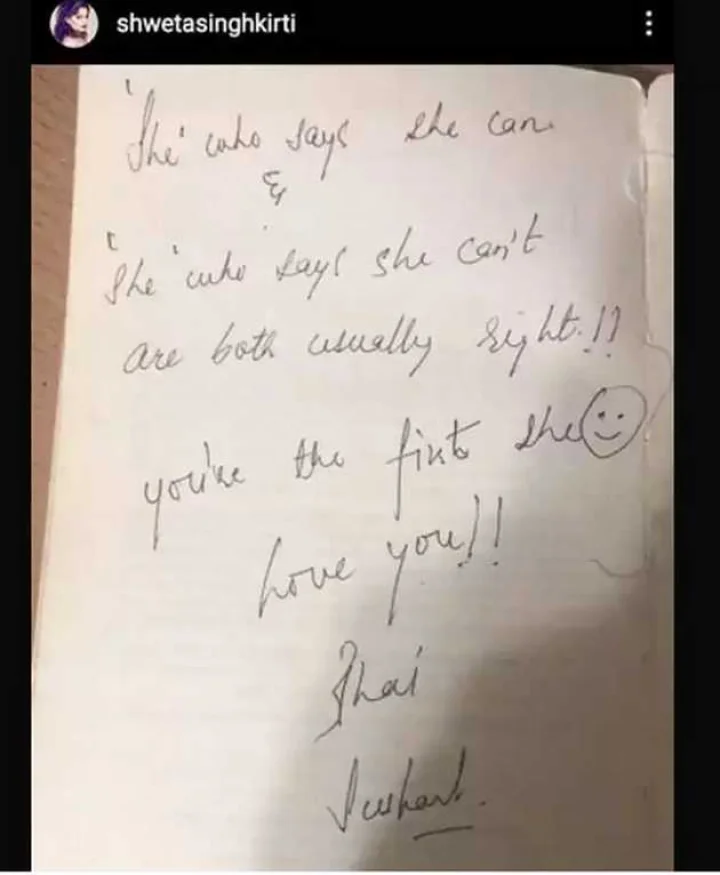 shwetasinghkirti
"She" who says she can
&
"She" who says she can't
are both usually right.!!
you're the first she
Love you!!
Bhai
Sushant.